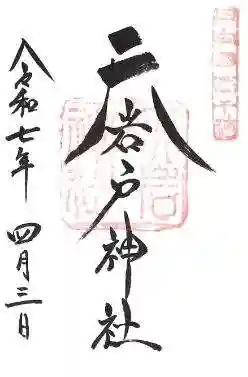 天岩戸神社
令和七年 四月三日